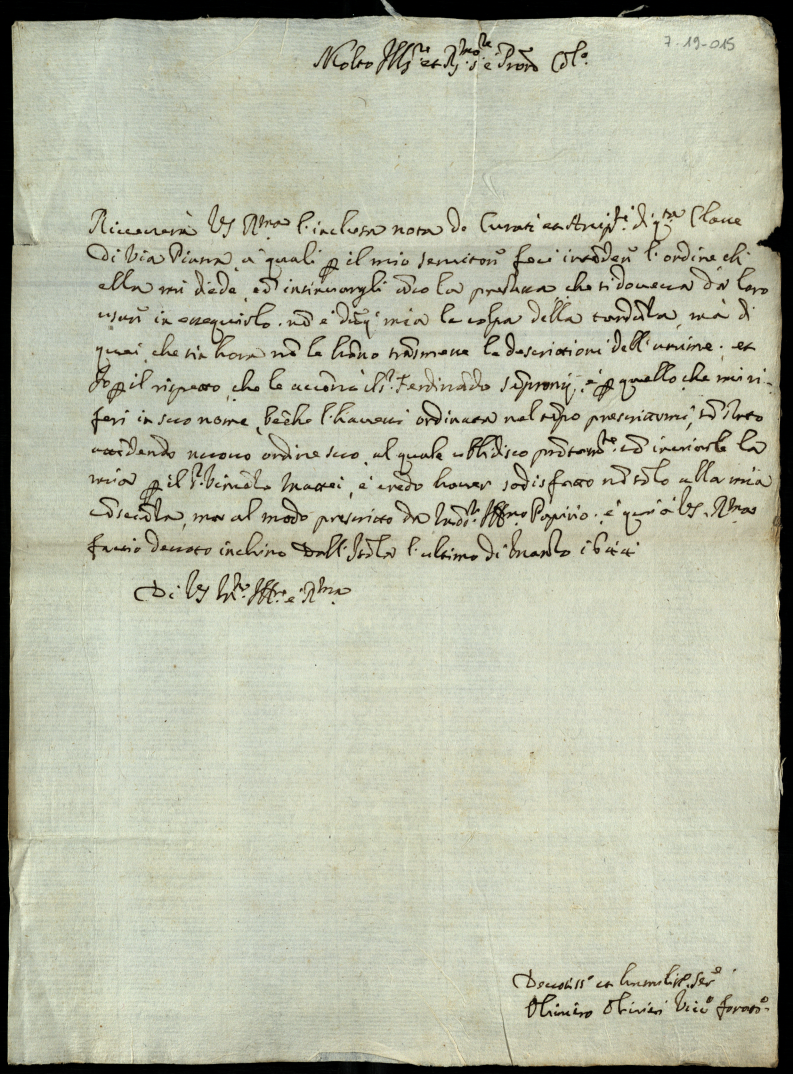 7-19-015
Molto Ill.re et R.mo S.r e Pron Col.o
Riceverà VS R.ma l'inclusa nota de Curati et Arcip.ti di q.ta Clave
di Via Piana, a' quali p il mio servitor feci intender l'ordine ch
ella mi diede, et insinuargli anco la prestezza che si doveva da loro
usar in essequirlo. nō è dūq mia la colpa della tardāza, mà di
quei, che sin hora nō le hāno trasmesse le descrittioni dell'anime. et
Io p il rispetto, che le accennò il S.r Ferdinādo Sēpronij, e p quello che mi ri-
ferì in suo nome, bēche l'havessi ordinata nel tēpo prescrittomi, stato
attēdendo nuovo ordine suo, al quale ubbidisco prōtamte. cō inviarle la
mia p il S.r Vincēzo Mattei, e credo haver sodisfatto nō solo alla mia
cōsciēza, ma al modo prescritto da Mōs.r Ill.mo Papirio. e qui à VS R.ma
faccio devoto inchino Dall'Isola l'ultimo di Marzo
Di VS M.to Ill.re e R.ma
Devotiss.o et humiliss. ser.o
Oliviero Olivieri Vic.o foraneo